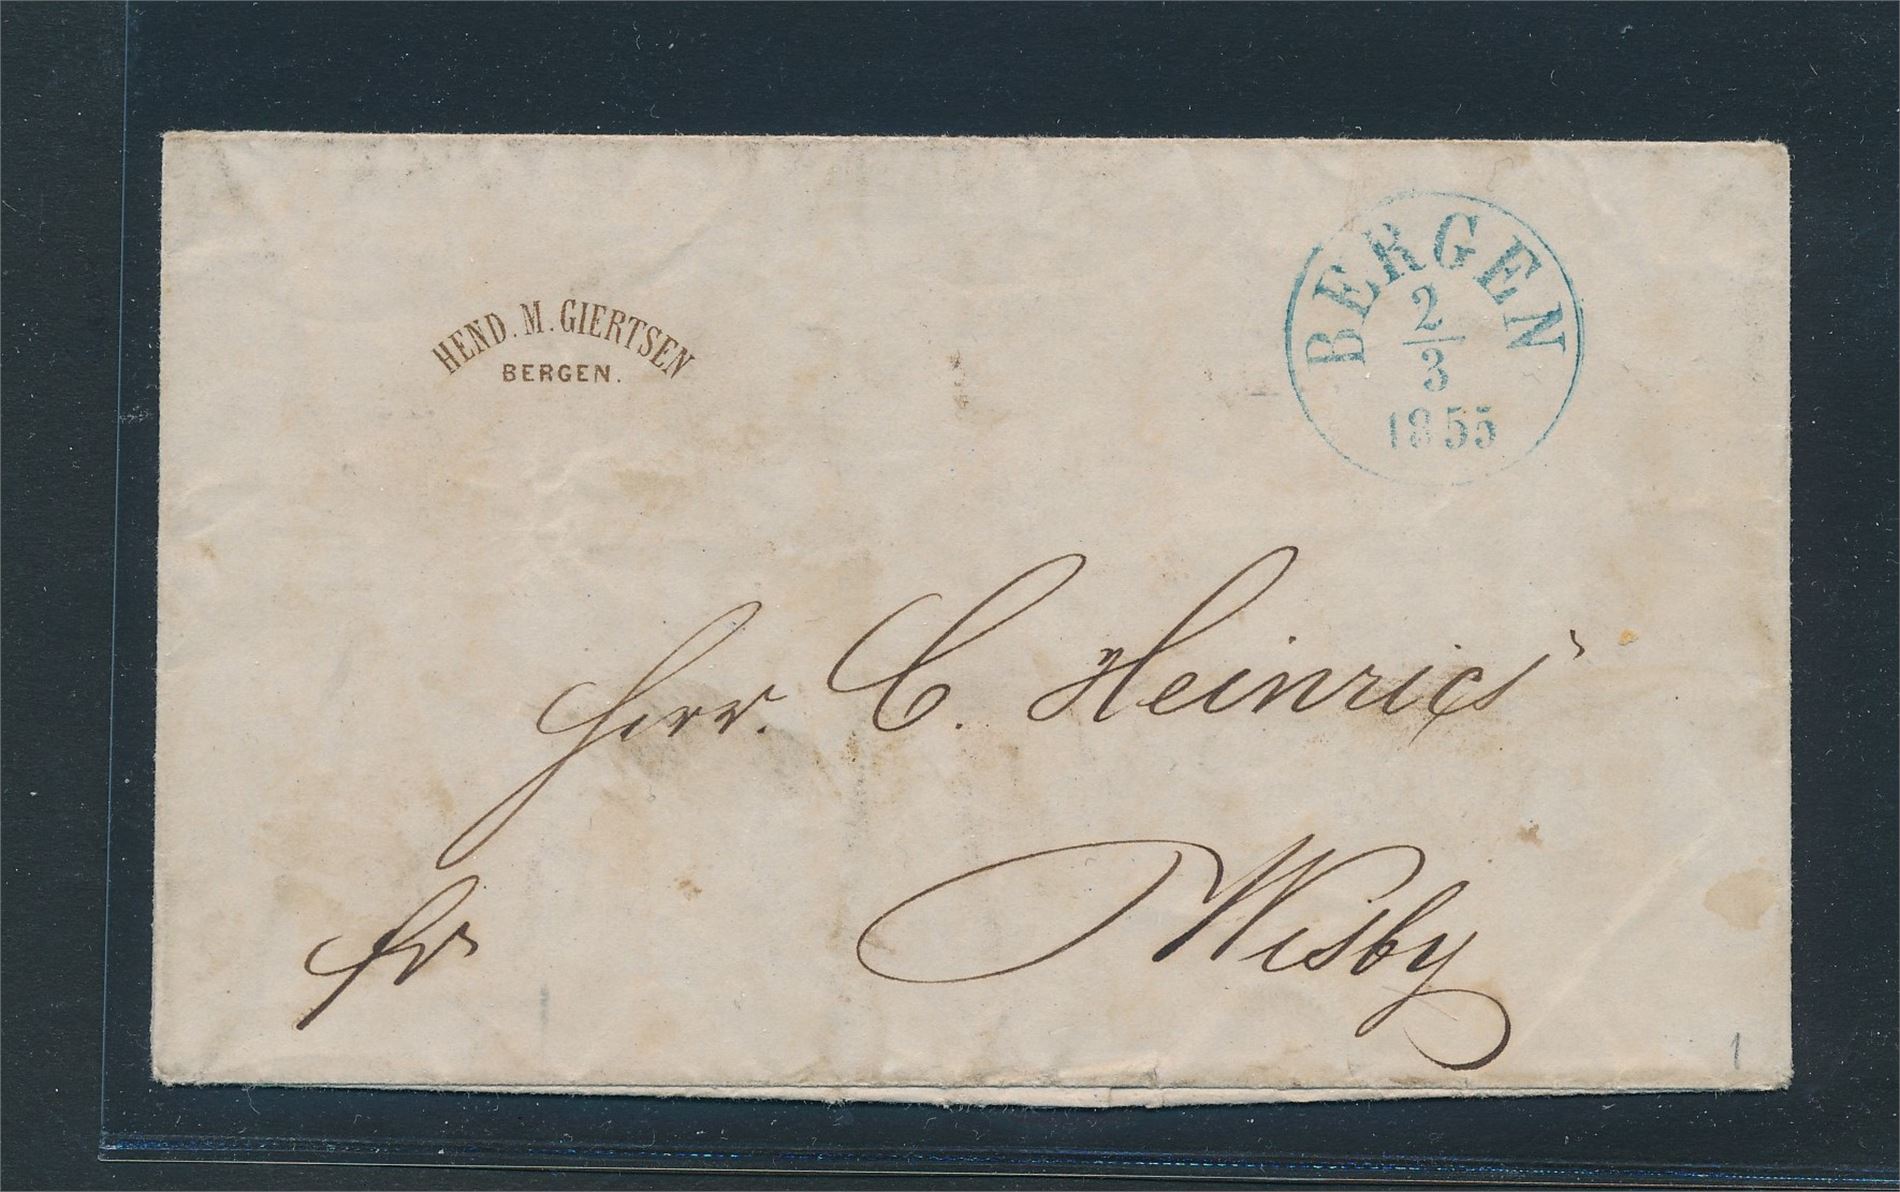 HEND. M. GIERTSEN
BERGEN.
BERGEN
2
3
1855
Herr. C. Heinrici
Wisby
fr
1